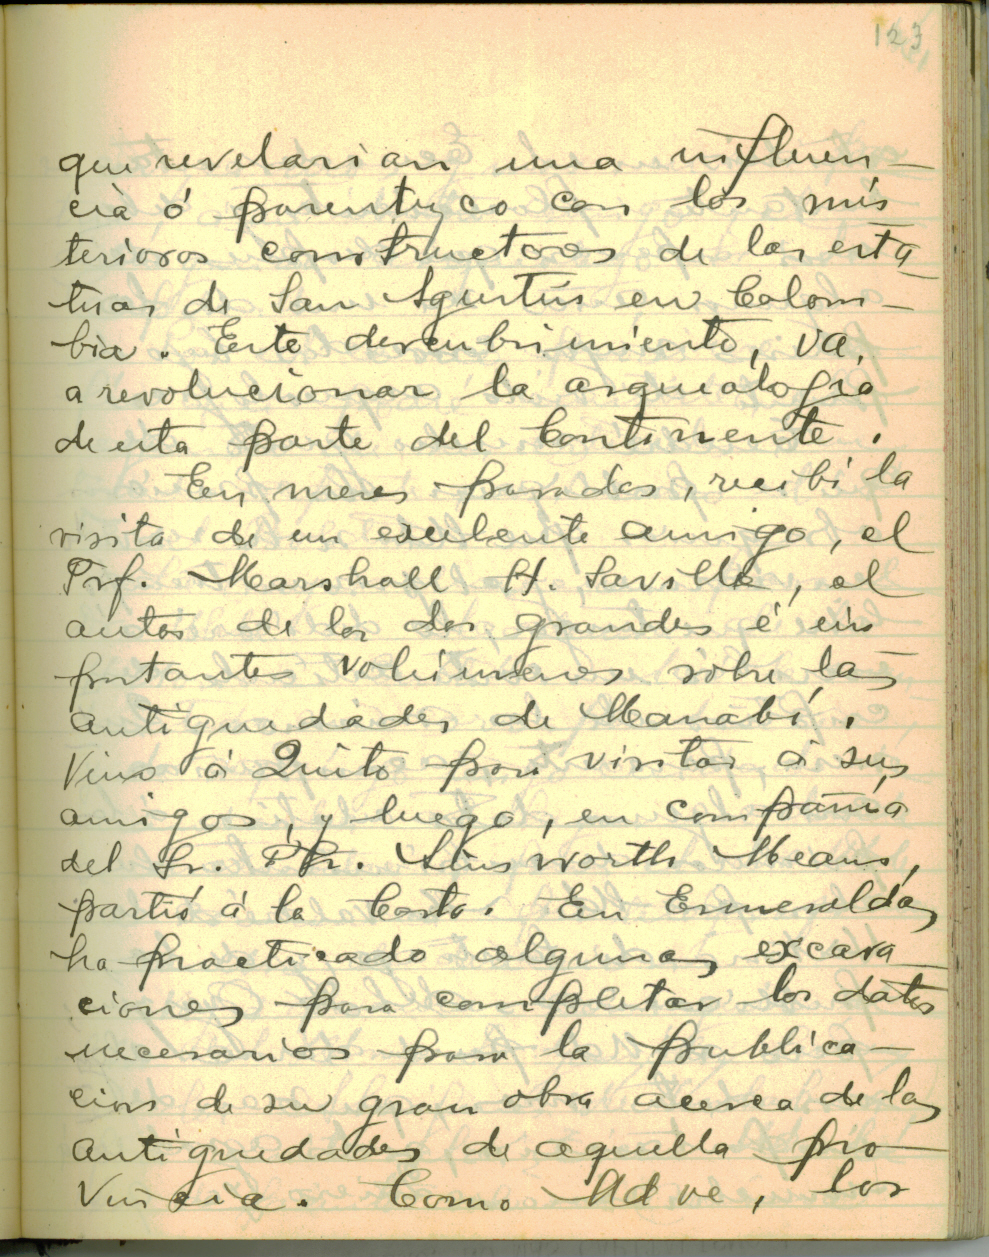 123
que revelarian una influen-
cia ó parentezco con los mis
teriosos constructores de las esta-
tuas de San Agustín en Colom-
bia. Este descubrimiento, va,
a revolucionar la arqueología
de esta parte del Continente.
En meses pasados, recibí la
visita de un excelente amigo, el
Prf. Marshall H. Saville, el
autor de los dos grandes é im
portantes volúmenes sobre las
antiguedades de Manabí.
Vino á Quito para visitar á sus
amigos, y luego, en compañía
del Sr. Ph. Ainsworth Means,
partió á la Costa. En Esmeraldas
ha practicado algunas excava-
ciones para completar los datos
necesarios para la publica-
cion de su gran obra acerca de las
antiguedades de aquella pro-
Vincia. Como Ud ve, los